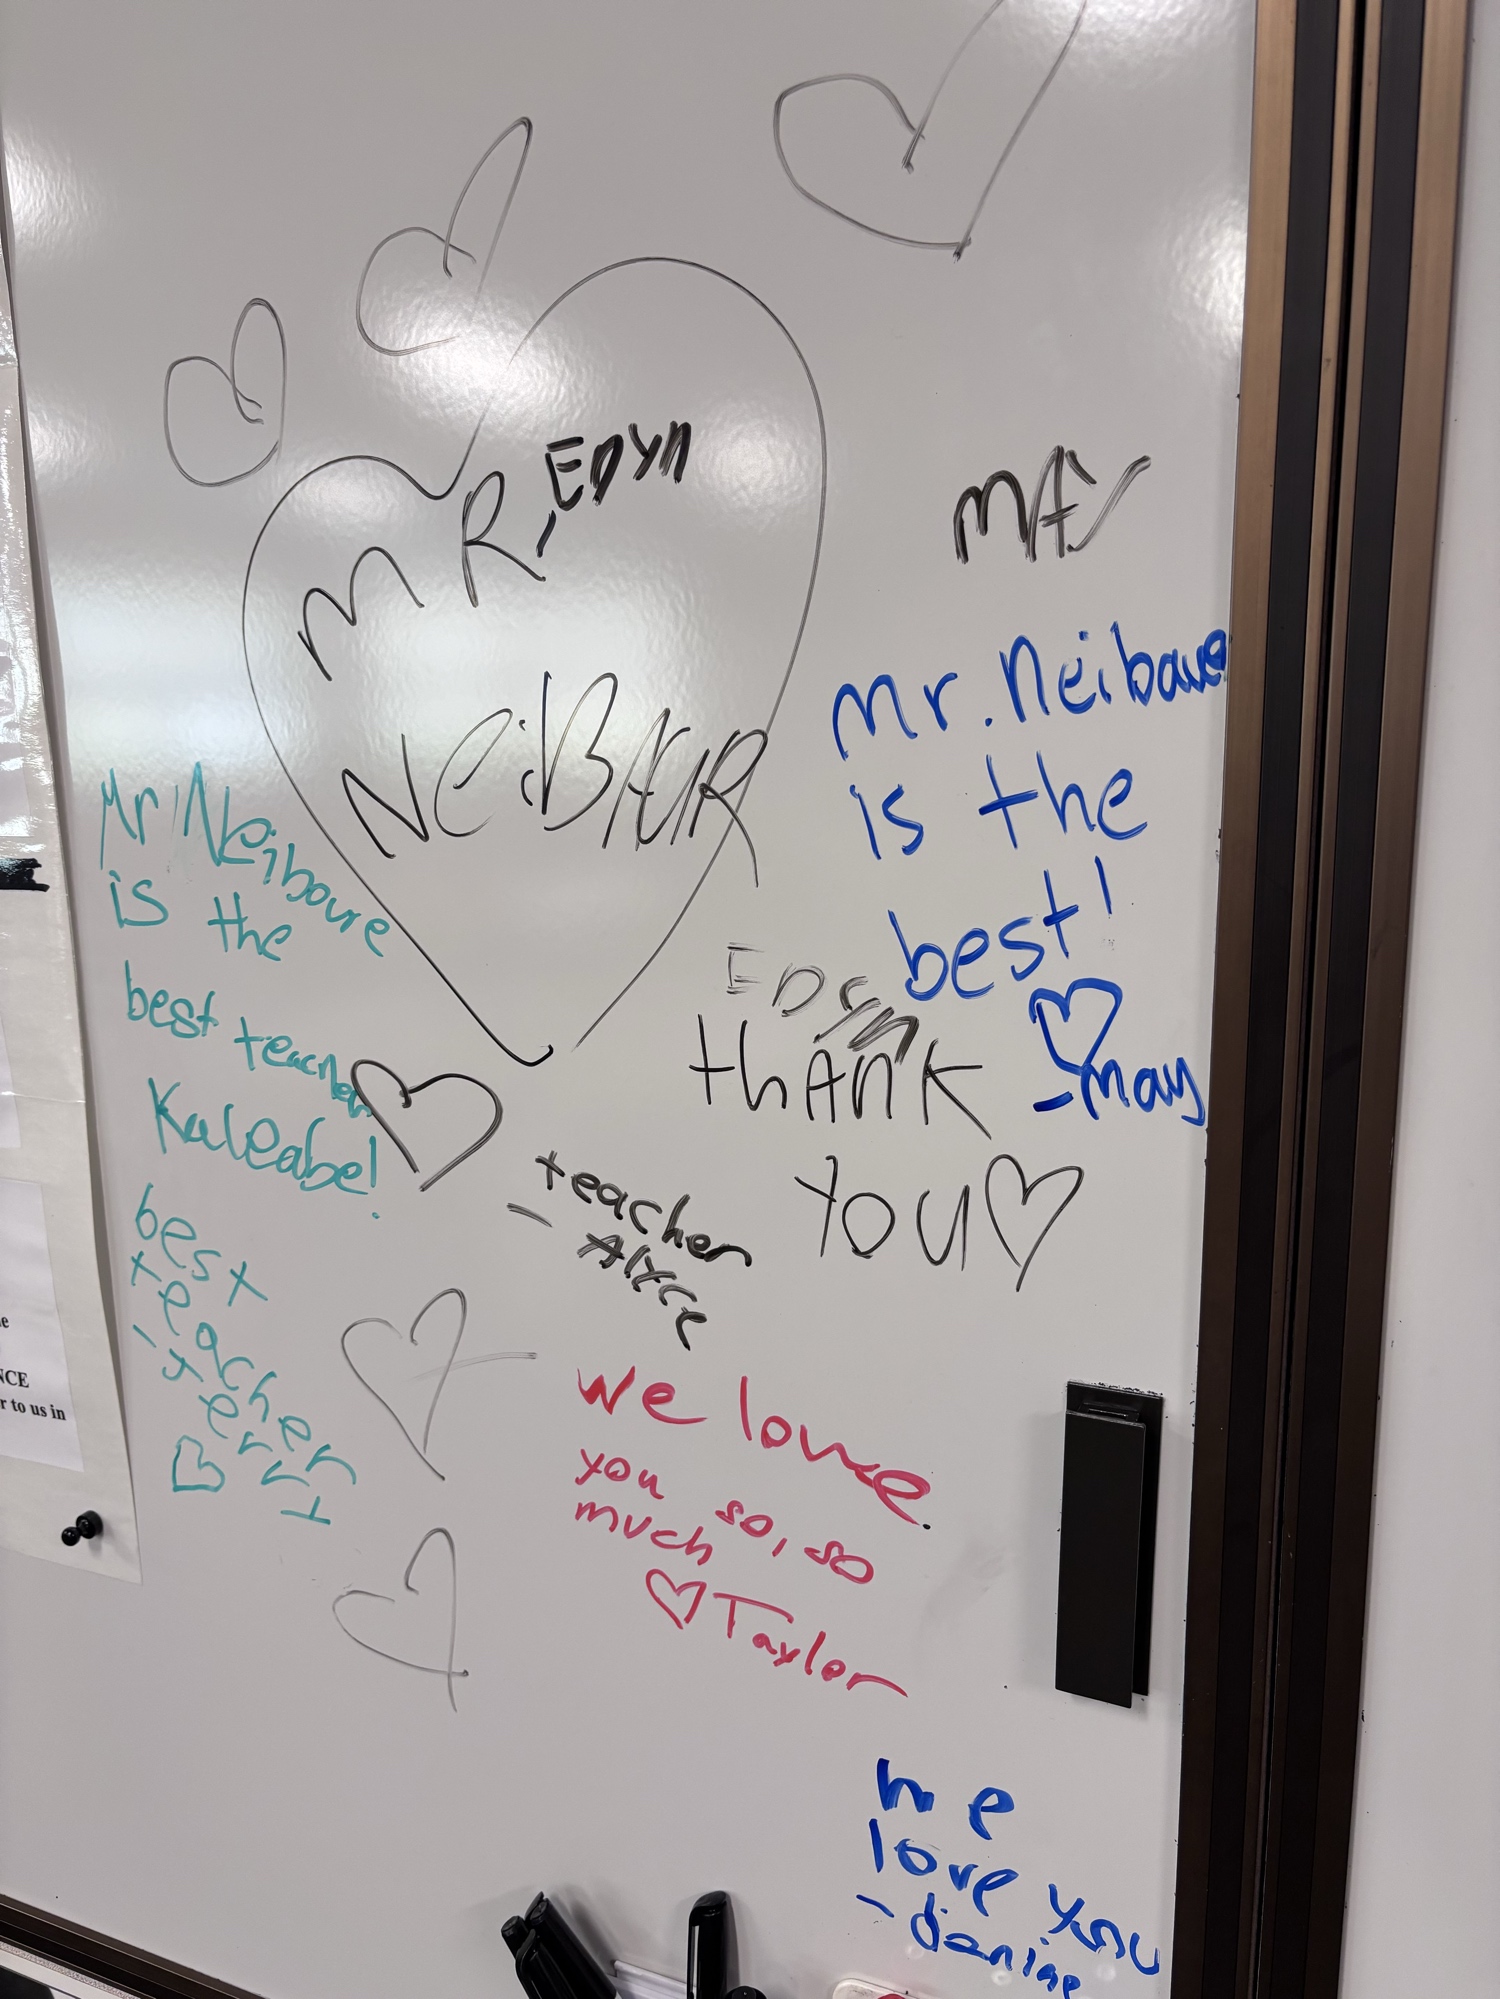 MR
- EDYN
NEiBAUR
MAY
Mr. Neibauer
is the
best!
- may
Mr Neiboure
is the
best teacher
Kaleabe!
EDyn
thANK
YOU
teacher
- Alyce
best
teacher
- Terri
We love
you so, so
much
Taylor
we
love you
- danine
NCE
r to us in